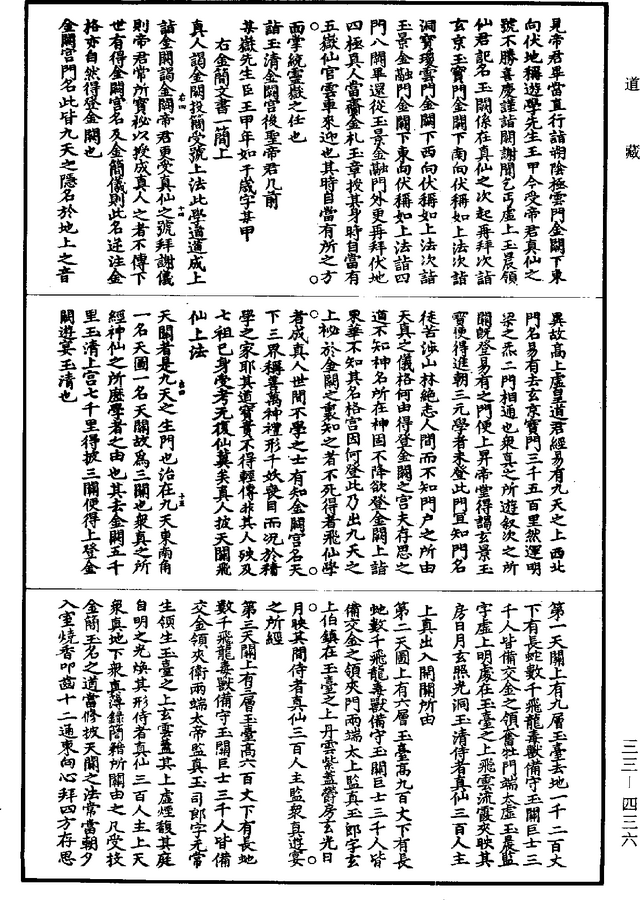 道藏
見帝君畢當直行詣湖陰極雲門金闕下東
向伏地稱遊學先生王甲今受帝君真仙之
號不勝喜慶謹詣闕謝聞乞丐虛上玉晨領
仙君記名玉闕係在真仙之次起再拜次詣
玄京玉寶門金闕下南向伏稱如上法次詣
洞寶瓊雲門金闕下西向伏稱如上法次詣
玉景金融門金闕下東向伏稱如上法詣四
門八闕畢還從玉景金融門外更再拜伏地
四極真人當齎金札玉章授其身時自當有
五嶽仙官雲車來迎也其時自當有所之方
面掌統靈嶽之任也
詣玉清金闕宮後聖帝君几前
某嶽先生臣王甲年如干歲字某甲
右金簡文書一簡上
真人謁金闕投簡受號上法此學道道成上
詣金闕謁金闕帝君更受真仙之號拜謝儀
則帝君常所寶祕以授成真人之者不傳下
世有得金闕宮名及金簡儀則此名逆注金
格亦自然得登金闕也
金闕宮門名此皆九天之隱名於地上之音
異故高上虛皇道君經易有九天之上西北
門名易有去玄京寶門三千五百里然運明
梁之炁二門相通也衆真之所遊叙次之所
開既登易有之門便上昇帝堂得謁玄景玉
寶便得進朝三元學者未登此門宜知門名
徒苦涉山林絶志人間而不知門户之所由
天真之儀格何由得登金闕之宮夫存思之
道不知神名所在神因不降欲登金闕上詣
東華不知其名格宮因何登此乃出九天之
上祕於金闕之裏知之者不死得者飛仙學
者成真人世間不學之士有知金闕宮名天
下三界稱善萬神禮形千妖喪目而况於稽
學之家耶其道寶貴不得輕傳非其人殃及
七祖己身受考无復仙冀矣真人披天關飛
仙上法
天關者是九天之生門也治在九天東南角
一名天圖一名天關故為三關也衆真之所
經神仙之所歷學者之由也其去金闕五千
里玉清上宮七千里得披三關便得上登金
闕遊宴玉清也
第一天關上有九層玉臺去地一千二百丈
下有長蛇數千飛龍毒獸備守玉關巨士三
千人皆備交金之領奮牡門端太虛玉晨監
字虛上明處在玉臺之上飛雲流霞夾映其
房日月玄照光洞玉清侍者真仙三百人主
上真出入開關所由
第二天圖上有六層玉臺高九百丈下有長
虵數千飛龍毒獸備守玉關巨士三千人皆
備交金之領夾門兩端太上監真玉郎字玄
上伯鎮在玉臺之上丹雲紫蓋欝房玄光日
月映其間侍者真仙三百人主監衆真遊宴
之所經
第三天關上有三層玉臺高六百丈下有長地
數千飛龍毒獸備守玉關巨士三千人皆備
交金領夾衛兩端太帝監真玉司郎字元常
生領生玉臺之上玄雲蓋其上虛煙馥其庭
自明之光煥其形侍者真仙三百人主上天
衆真地下衆真簿録簡籍所關由之凡受技
金簡玉名之道當修披天關之法常當朝夕
入室燒香叩齒十二通東向心拜四方存思
三三—四三六